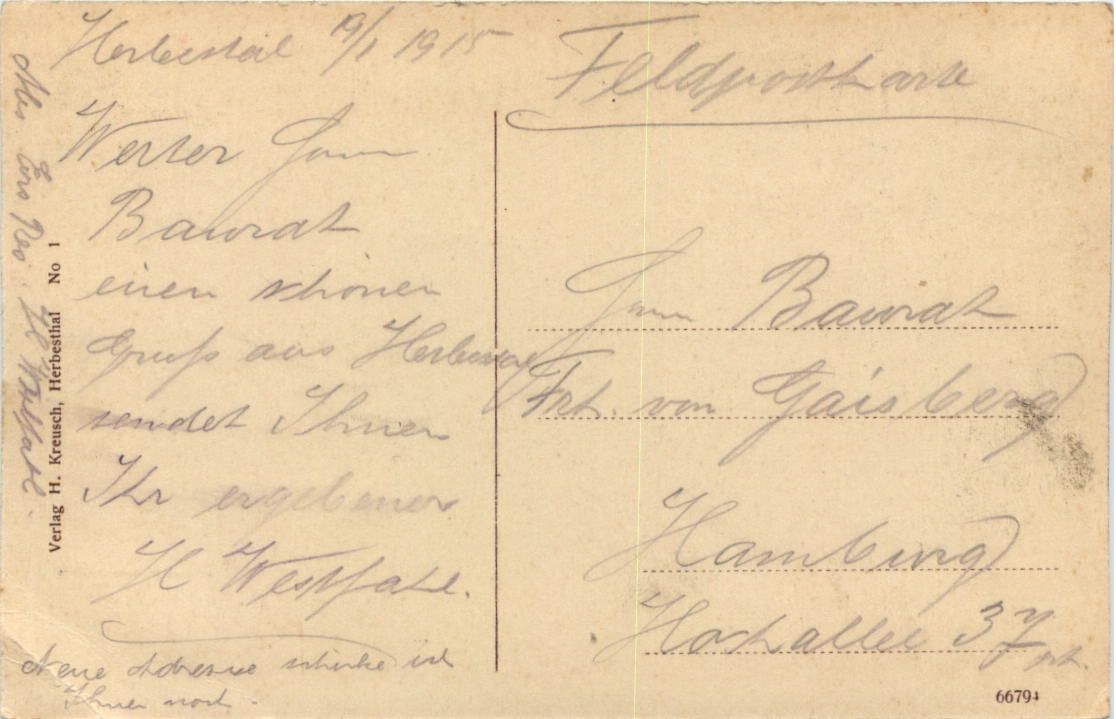 Herbestal 19/1 1915
Werter Herr
Baurat
einen schönen
Gruß aus Herbesta
sendet Ihnen
Ihr ergebener
H Westfahl.
Neue Adresse schicke ich
Ihnen noch.
H Westfahl.
Verlag H. Kreusch, Herbesthal No 1
Feldpostkarte
Herrn Baurat
Frh. von Gaisberg
Hamburg
Hochallee 37
66794